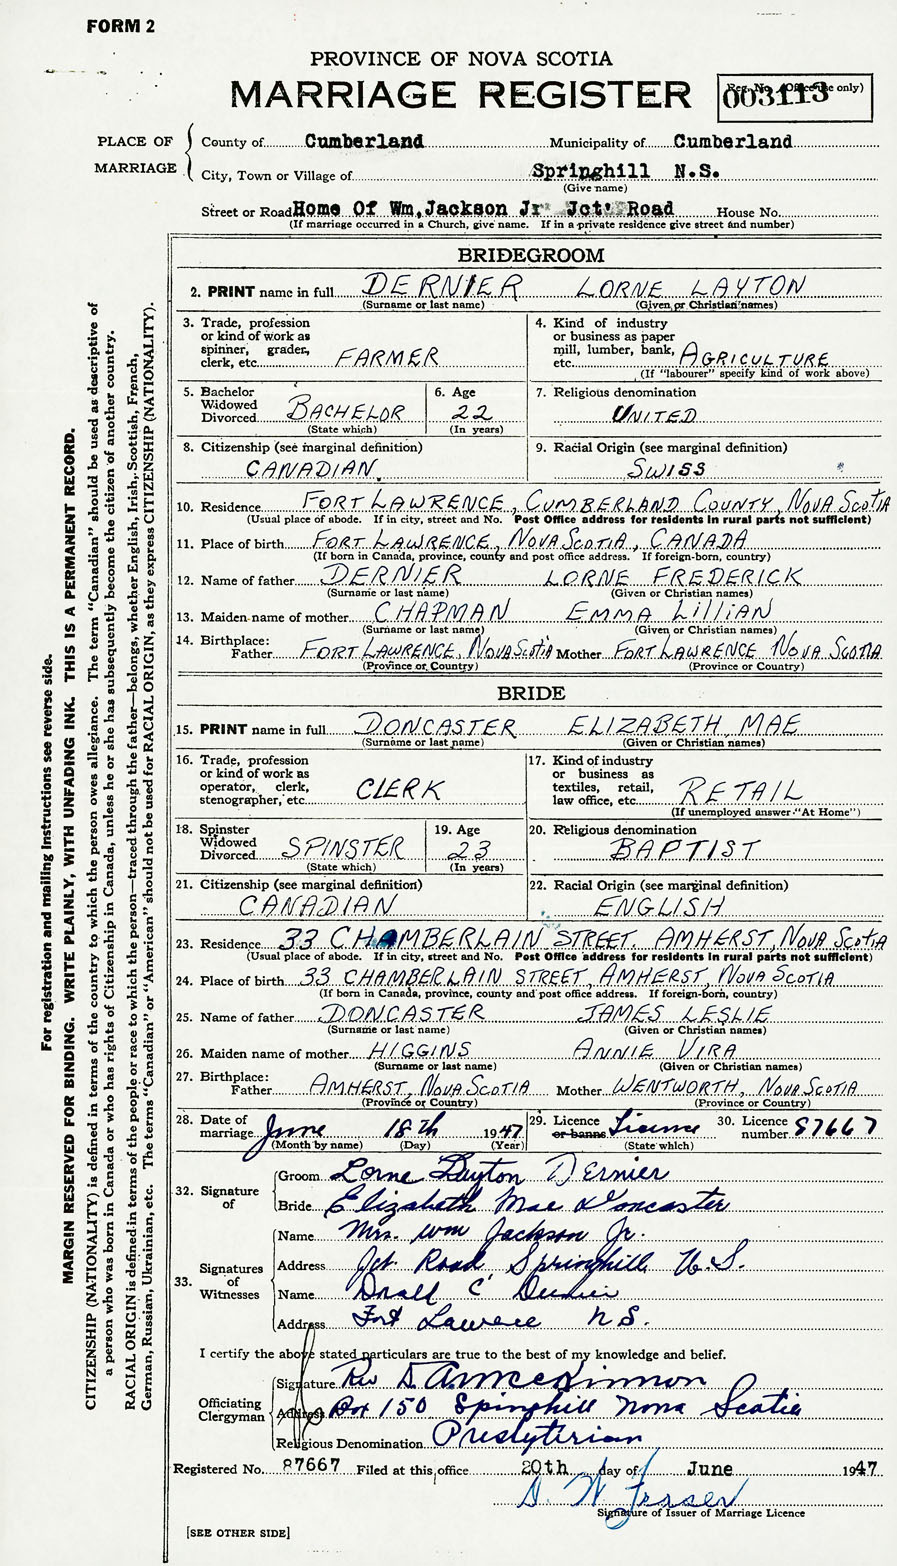 FORM 2
PROVINCE OF NOVA SCOTIA
MARRIAGE REGISTER
Reg. No. (Office use only)
003113
PLACE OF MARRIAGE
County of Cumberland Municipality of Cumberland
City, Town or Village of Springhill N.S.
(Give name)
Street or Road Home Of Wm, Jackson Jr Jct' Road House No.
(If marriage occurred in a Church, give name. If in a private residence give street and number)
BRIDEGROOM
2. PRINT name in full DERNIER LORNE LAYTON
(Surname or last name) (Given or Christian names)
3. Trade, profession or kind of work as spinner, grader, clerk, etc. FARMER
4. Kind of industry or business as paper mill, lumber, bank, etc. AGRICULTURE
(If "labourer" specify kind of work above)
5. Bachelor Widowed Divorced BACHELOR
(State which)
6. Age 22
(In years)
7. Religious denomination
UNITED
8. Citizenship (see marginal definition)
CANADIAN
9. Racial Origin (see marginal definition)
SWISS
10. Residence FORT LAWRENCE, CUMBERLAND COUNTY, NOVA SCOTIA
(Usual place of abode. If in city, street and No. Post Office address for residents in rural parts not sufficient)
11. Place of birth FORT LAWRENCE, NOVA SCOTIA, CANADA
(If born in Canada, province, county and post office address. If foreign-born, country)
12. Name of father DERNIER LORNE FREDERICK
(Surname or last name) (Given or Christian names)
13. Maiden name of mother CHAPMAN EMMA LILLIAN
(Surname or last name) (Given or Christian names)
14. Birthplace:
Father FORT LAWRENCE, NOVA SCOTIA Mother FORT LAWRENCE NOVA SCOTIA
(Province or Country) (Province or Country)
BRIDE
15. PRINT name in full DONCASTER ELIZABETH MAE
(Surname or last name) (Given or Christian names)
16. Trade, profession or kind of work as operator, clerk, stenographer, etc. CLERK
17. Kind of industry or business as textiles, retail, law office, etc. RETAIL
(If unemployed answer "At Home")
18. Spinster Widowed Divorced SPINSTER
(State which)
19. Age 23
(In years)
20. Religious denomination
BAPTIST
21. Citizenship (see marginal definition)
CANADIAN
22. Racial Origin (see marginal definition)
ENGLISH
23. Residence 33 CHAMBERLAIN STREET. AMHERST, NOVA SCOTIA
(Usual place of abode. If in city, street and No. Post Office address for residents in rural parts not sufficient)
24. Place of birth 33 CHAMBERLAIN STREET, AMHERST, NOVA SCOTIA
(If born in Canada, province, county and post office address. If foreign-born, country)
25. Name of father DONCASTER JAMES LESLIE
(Surname or last name) (Given or Christian names)
26. Maiden name of mother HIGGINS ANNIE VIRA
(Surname or last name) (Given or Christian names)
27. Birthplace:
Father AMHERST, NOVA SCOTIA Mother WENTWORTH, NOVA SCOTIA
(Province or Country) (Province or Country)
28. Date of marriage June 18th 1947
(Month by name) (Day) (Year)
29. Licence or banns License
(State which)
30. Licence number 87667
32. Signature of
Groom Lorne Layton Dernier
Bride Elizabeth Mae Doncaster
33. Signatures of Witnesses
Name Mrs. Wm Jackson Jr.
Address Jct. Road Springhill N.S.
Name Donald C Dernier
Address Fort Lawrence N.S.
I certify the above stated particulars are true to the best of my knowledge and belief.
Officiating Clergyman
Signature Rev D. A. McKinnon
Address Box 150 Springhill Nova Scotia
Religious Denomination Presbyterian
Registered No. 87667 Filed at this office 20th day of June 1947
Signature of Issuer of Marriage Licence
[SEE OTHER SIDE]
For registration and mailing instructions see reverse side.
MARGIN RESERVED FOR BINDING. WRITE PLAINLY, WITH UNFADING INK. THIS IS A PERMANENT RECORD.
CITIZENSHIP (NATIONALITY) is defined in terms of the country to which the person owes allegiance. The term "Canadian" should be used as descriptive of
a person who was born in Canada or who has rights of Citizenship in Canada, unless he or she has subsequently become the citizen of another country.
RACIAL ORIGIN is defined in terms of the people or race to which the person—traced through the father—belongs, whether English, Irish, Scottish, French,
German, Russian, Ukrainian, etc. The terms "Canadian" or "American" should not be used for RACIAL ORIGIN, as they express CITIZENSHIP (NATIONALITY).